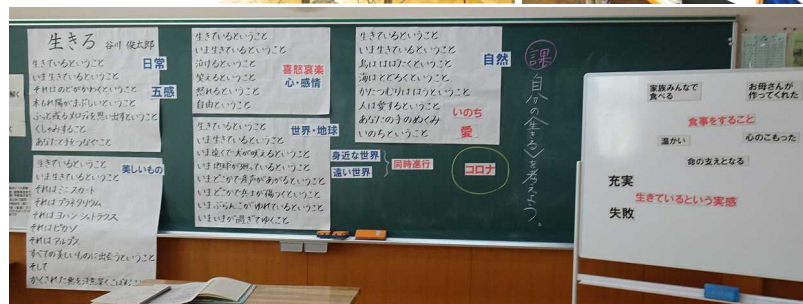 生きる
谷川 俊太郎
生きているということ
いま生きているということ
それはのどがかわくということ
木もれ陽がまぶしいということ
ふっと或るメロディを思い出すということ
くしゃみすること
あなたと手をつなぐこと
日常
五感
生きているということ
いま生きているということ
それはミニスカート
それはプラネタリウム
それはヨハン・シュトラウス
それはピカソ
それはアルプス
すべての美しいものに出会うということ
そして
かくされた悪を注意深くこばむこと
美しいもの
生きているということ
いま生きているということ
泣けるということ
笑えるということ
怒れるということ
自由ということ
喜怒哀楽
心・感情
生きているということ
いま生きているということ
いま遠くで犬が吠えるということ
いま地球が廻っているということ
いまどこかで産声があがるということ
いまどこかで兵士が傷つくということ
いまぶらんこがゆれているということ
いまいまが過ぎてゆくこと
世界・地球
身近な世界
遠い世界
同時進行
生きているということ
いま生きているということ
鳥ははばたくということ
海はとどろくということ
かたつむりははうということ
人は愛するということ
あなたの手のぬくみ
いのちということ
自然
いのち
愛
コロナ
課
自分の〈生きる〉を考えよう。
家族みんなで
食べる
お母さんが
作ってくれた
食事をすること
温かい
心のこもった
命の支えとなる
充実
生きているという実感
失敗